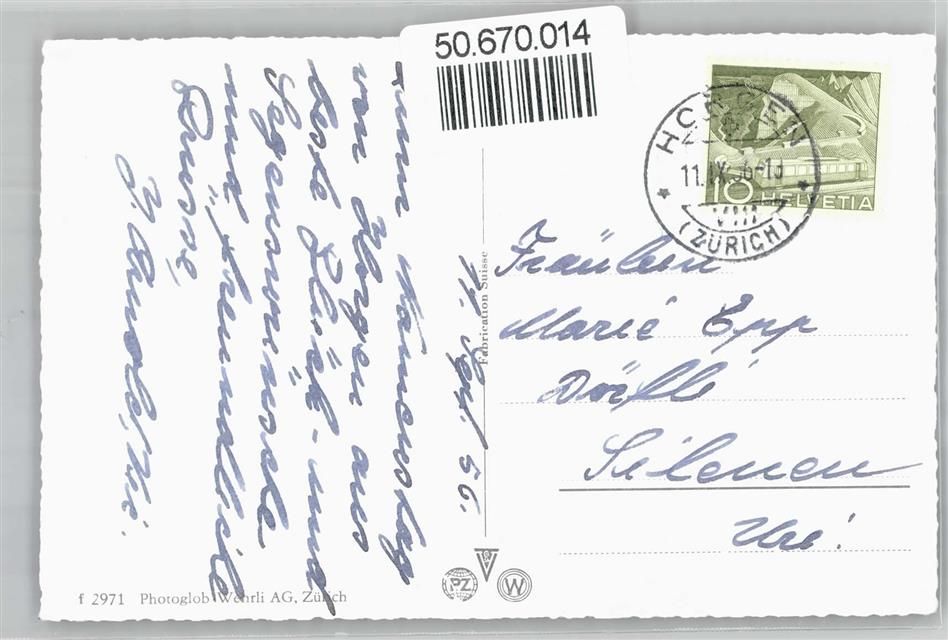 50.670.014
HORGEN
11.IX.56-13
(ZÜRICH)
10 HELVETIA
11. Sept. 56.
zum Namenstag
von Horgen aus
beste Glück- und
Segenswünsche
und freundliche
Grüsse,
Fräulein
Marie Epp
Dörfli
Silenen
Uri.
Fabrication Suisse
PZ
W
f 2971 Photoglob-Wehrli AG, Zürich